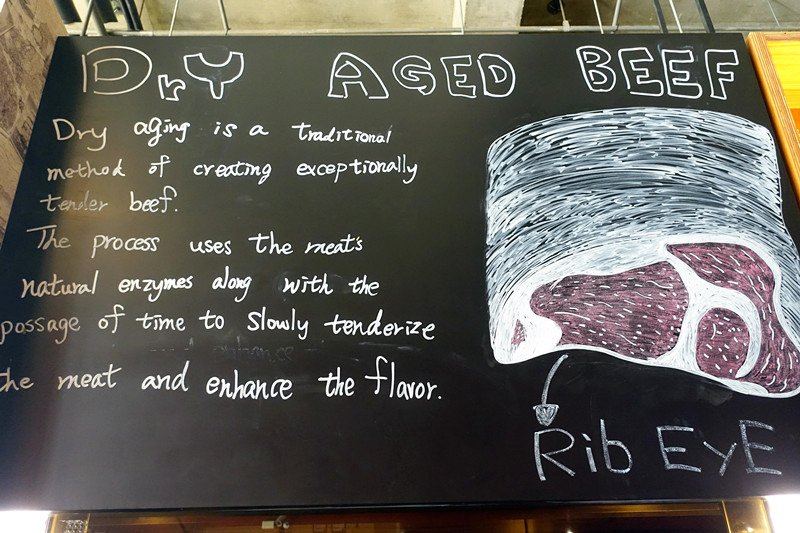 DrY AGED BEEF
Dry aging is a traditional
method of creating exceptionally
tender beef.
The process uses the meat's
natural enzymes along with the
passage of time to slowly tenderize
the meat and enhance the flavor.
Rib EyE